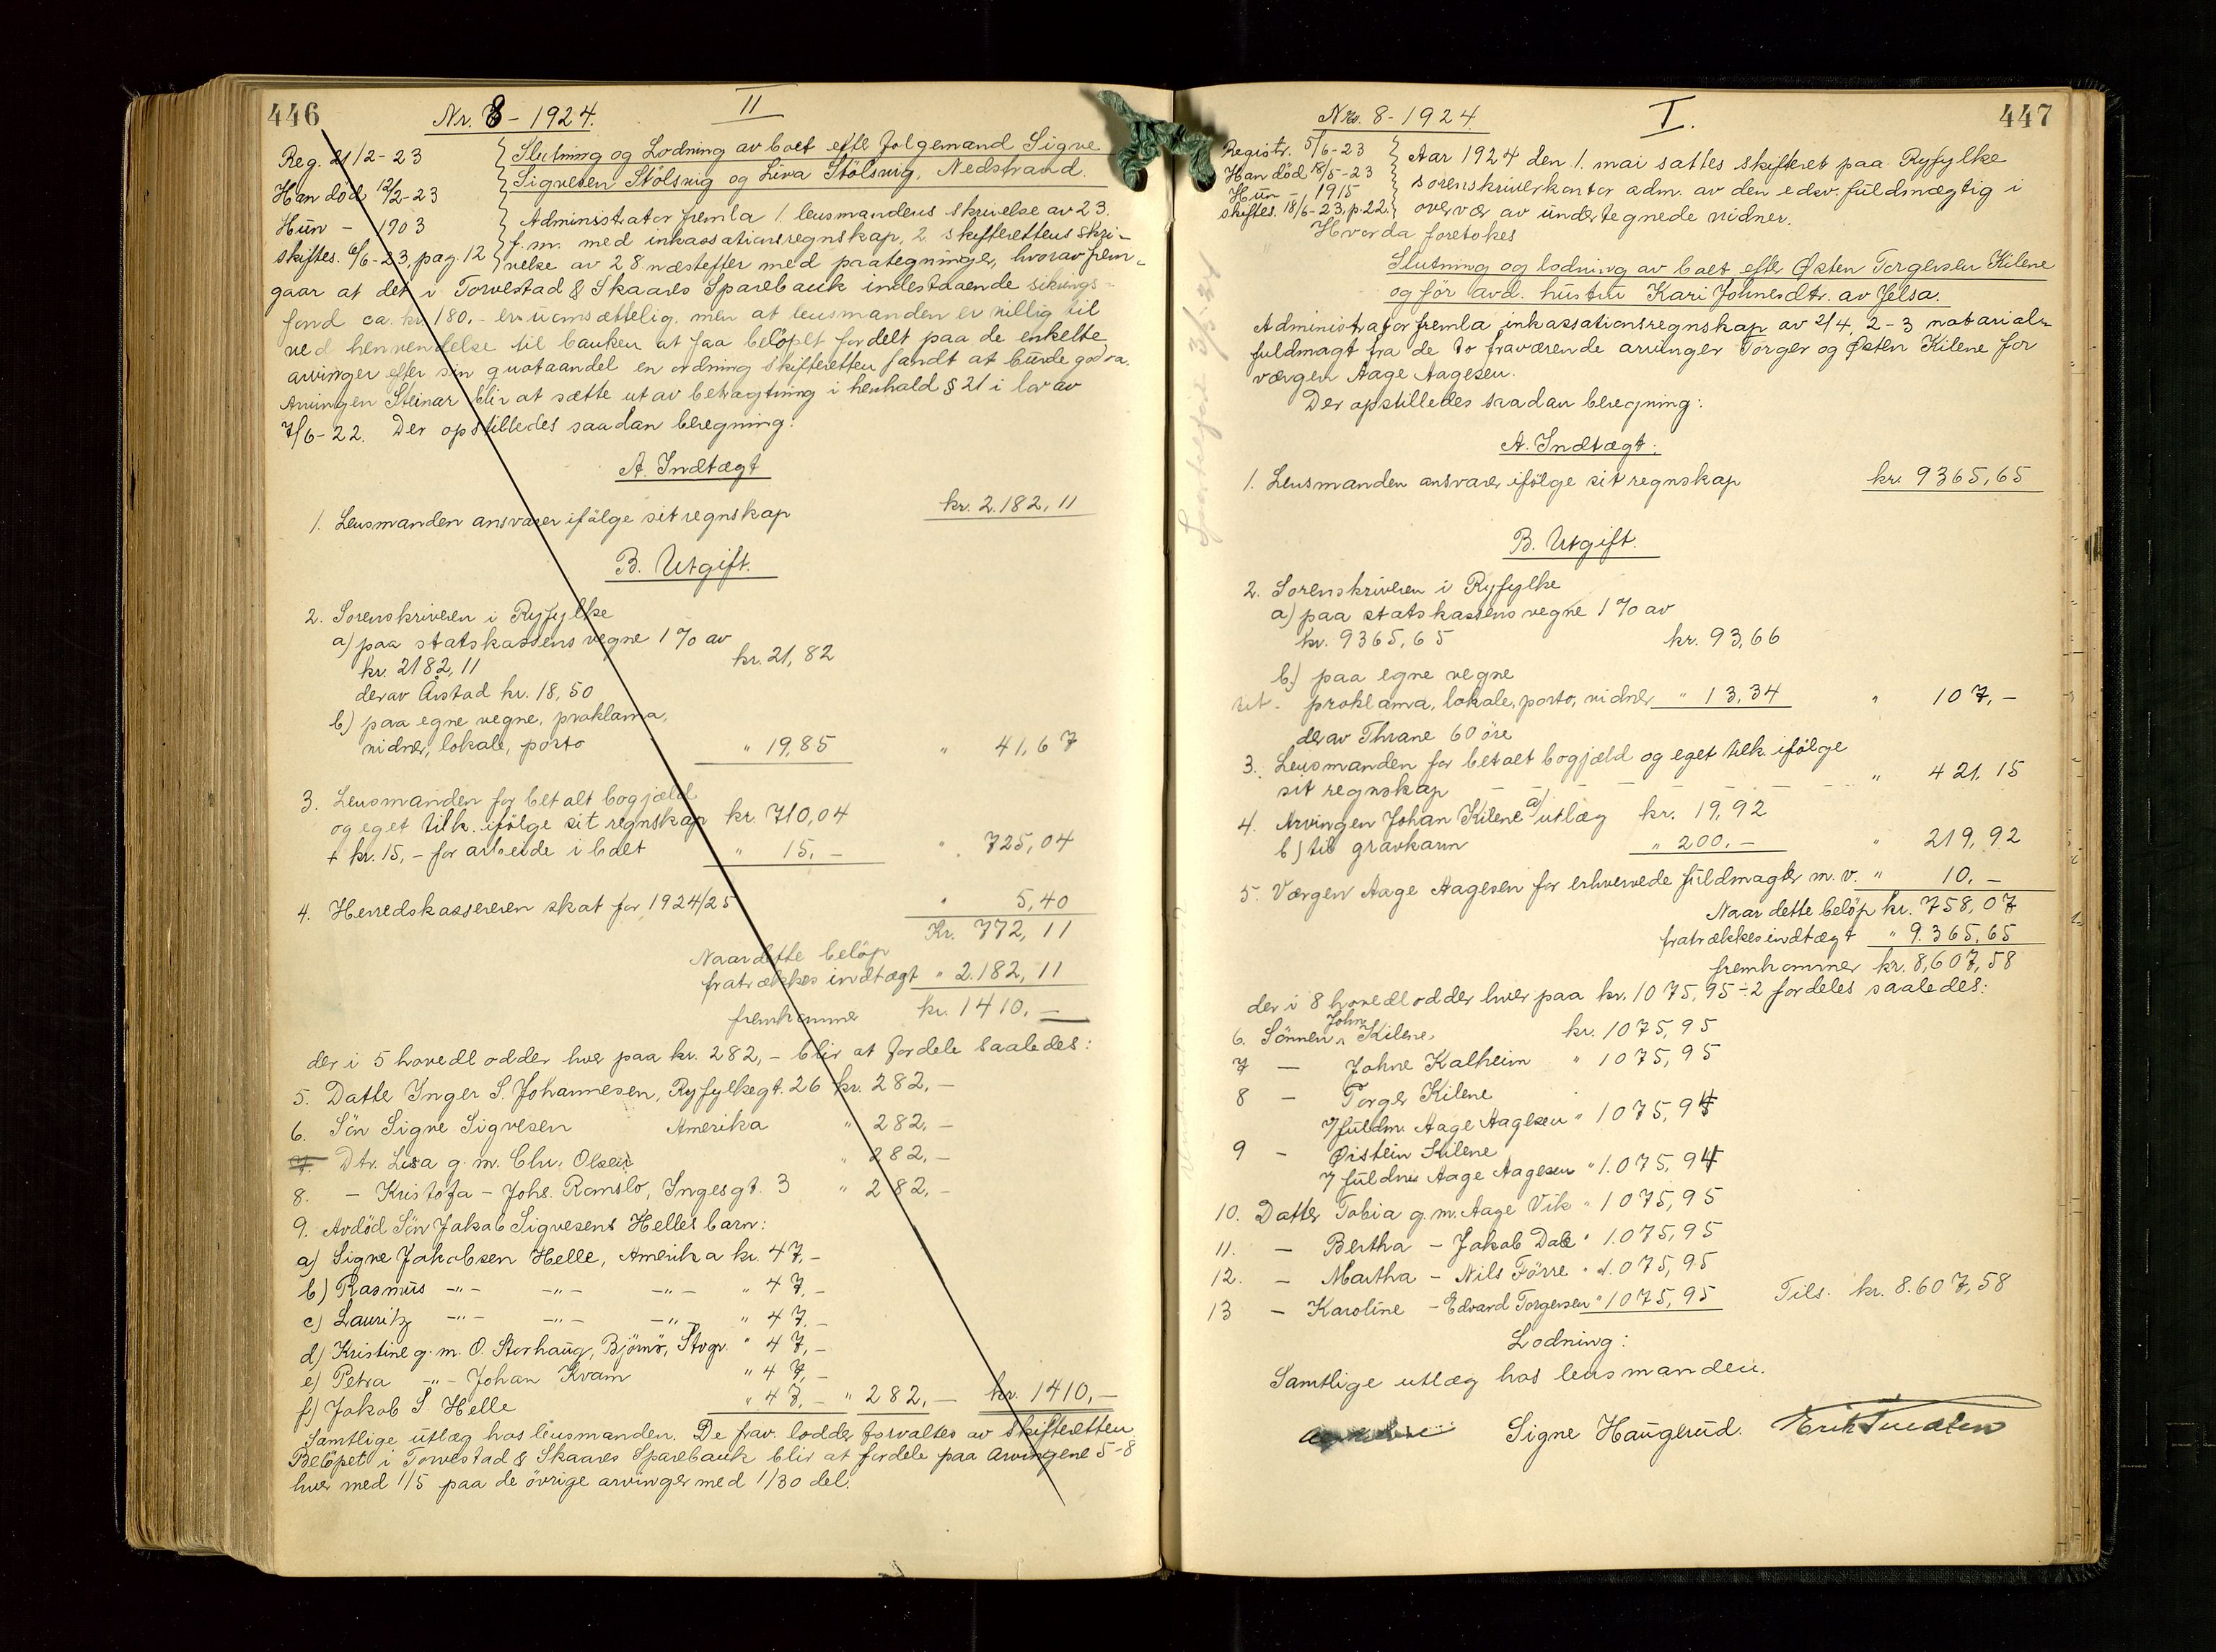 446
Nr. 8 - 1924.
II
Reg. 21/2-23
Han död 12/2-23
Hun - 1903
skiftes. 6/6-23, pag. 12
Slutning og Lodning av boet efter Folgemand Sigve
Sigvesen Stölsvig og Liva Stölsvig, Nedstrand.
Administrator fremla 1. lensmandens skrivelse av 23.
f.m. med inkassationsregnskap, 2. skifterettens skri-
velse av 28 næstefter med paategninger, hvorav frem-
gaar at det i Torvestad & Skaares Sparebank indestaaende sikrings-
fond ca. kr. 180,- er uomsættelig, men at lensmanden er villig til
ved henvendelse til banken at faa belöpet fordelt paa de enkelte
arvinger efter sin quotaandel en ordning skifteretten fandt at burde godta.
Arvingen Steinar blir at sætte ut av betragtning i henhold § 21 i lov av
7/6-22. Der opstilledes saadan beregning:
A. Indtægt
1. Lensmanden ansvarer ifölge sit regnskap kr. 2.182,11
B. Utgift.
2. Sorenskriveren i Ryfylke
a) paa statskassens vegne 1% av
kr. 2182,11 kr. 21,82
derav Årstad kr. 18,50
b) paa egne vegne, proklama,
vidner, lokale, porto " 19,85 " 41,67
3. Lensmanden for betalt bogjæld
og eget tilk. ifölge sit regnskap kr. 710,04
+ kr. 15,- for arbeide i boet " 15,- " 725,04
4. Herredskassereren skat for 1924/25 " 5,40
Kr. 772,11
Naar dette belöp
fratrækkes indtægt " 2.182,11
fremkommer kr. 1410,-
der i 5 hovedlodder hver paa kr. 282,- blir at fordele saaledes:
5. Datter Inger S. Johannesen, Ryfylkegt. 26 kr. 282,-
6. Sön Sigve Sigvesen Amerika " 282,-
7. Dtr. Lisa g.m. Chr. Olsen " 282,-
8. - Kristofa - Johs. Ramslo, Ingesgt. 3 " 282,-
9. Avdöd Sön Jakob Sigvesens Helles barn:
a) Sigve Jakobsen Helle, Amerika kr. 47,-
b) Rasmus -"- -"- -"- " 47,-
c) Lauritz -"- -"- -"- " 47,-
d) Kristine g.m. O. Storhaug, Björnö, Stvgr. " 47,-
e) Petra -"- Johan Kvam " 47,-
f) Jakob S. Helle " 47,- " 282,- kr. 1410,-
Samtlige utlæg hos lensmanden. De frav. lodder forvaltes av Skifteretten.
Belöpet i Torvestad & Skaares Sparebank blir at fordele paa arvingene 5-8
hver med 1/5 paa de övrige arvinger med 1/30 del.
447
Nr. 8 - 1924.
I.
Registr. 5/6-23
Han död 18/5-23
Hun - 1915
skiftes. 18/6-23, p. 22.
Aar 1924 den 1. mai sattes skifteret paa Ryfylke
sorenskriverkontor adm. av den edsv. fuldmægtig i
overvær av undertegnede vidner.
Hvorda foretokes
Slutning og lodning av boet efter Østen Torgersen Kilene
og för avd. hustru Kari Johnesdtr. av Jelsa.
Administrator fremla inkassationsregnskap av 2/4, 2-3 notarial-
fuldmagt fra de to fraværende arvinger Torger og Østen Kilene for
værgen Aage Aagesen.
Der opstilledes saadan beregning:
A. Indtægt.
1. Lensmanden ansvarer ifölge sit regnskap kr. 9365,65
B. Utgift.
2. Sorenskriveren i Ryfylke
a) paa statskassens vegne 1% av
kr. 9365,65 kr. 93,66
b.) paa egne vegne
proklama, lokale, porto, vidner " 13,34 " 107,-
derav Thrane 60 öre
3. Lensmanden for betalt bogjæld og eget tilk. ifölge
sit regnskap " 421,15
4. Arvingen Johan Kilene a) utlæg kr. 19,92
b) til gravkarm " 200,- " 219,92
5. Værgen Aage Aagesen for erhvervede fuldmagter m.v. " 10,-
Naar dette belöp kr. 758,07
fratrækkes indtægt " 9.365,65
fremkommer kr. 8,607,58
der i 8 hovedlodder hver paa kr. 1075,95 ÷ 2 fordeles saaledes:
6. Sönnen John Kilene, kr. 1075,95
7 - Johne Kalheim " 1075,95
8 - Torger Kilene
v/fuldm. Aage Aagesen " 1075,94
9 - Øistein Kilene
v/fuldm Aage Aagesen " 1.075,94
10. Datter Tobia g.m. Aage Vik " 1075,95
11. - Bertha - Jakob Dale " 1.075,95
12. - Martha - Nils Förre " 1.075,95
13 - Karoline - Edvard Torgersen " 1075,95 Tils. kr. 8.607,58
Lodning:
Samtlige utlæg hos lensmanden.
Signe Haugerud.